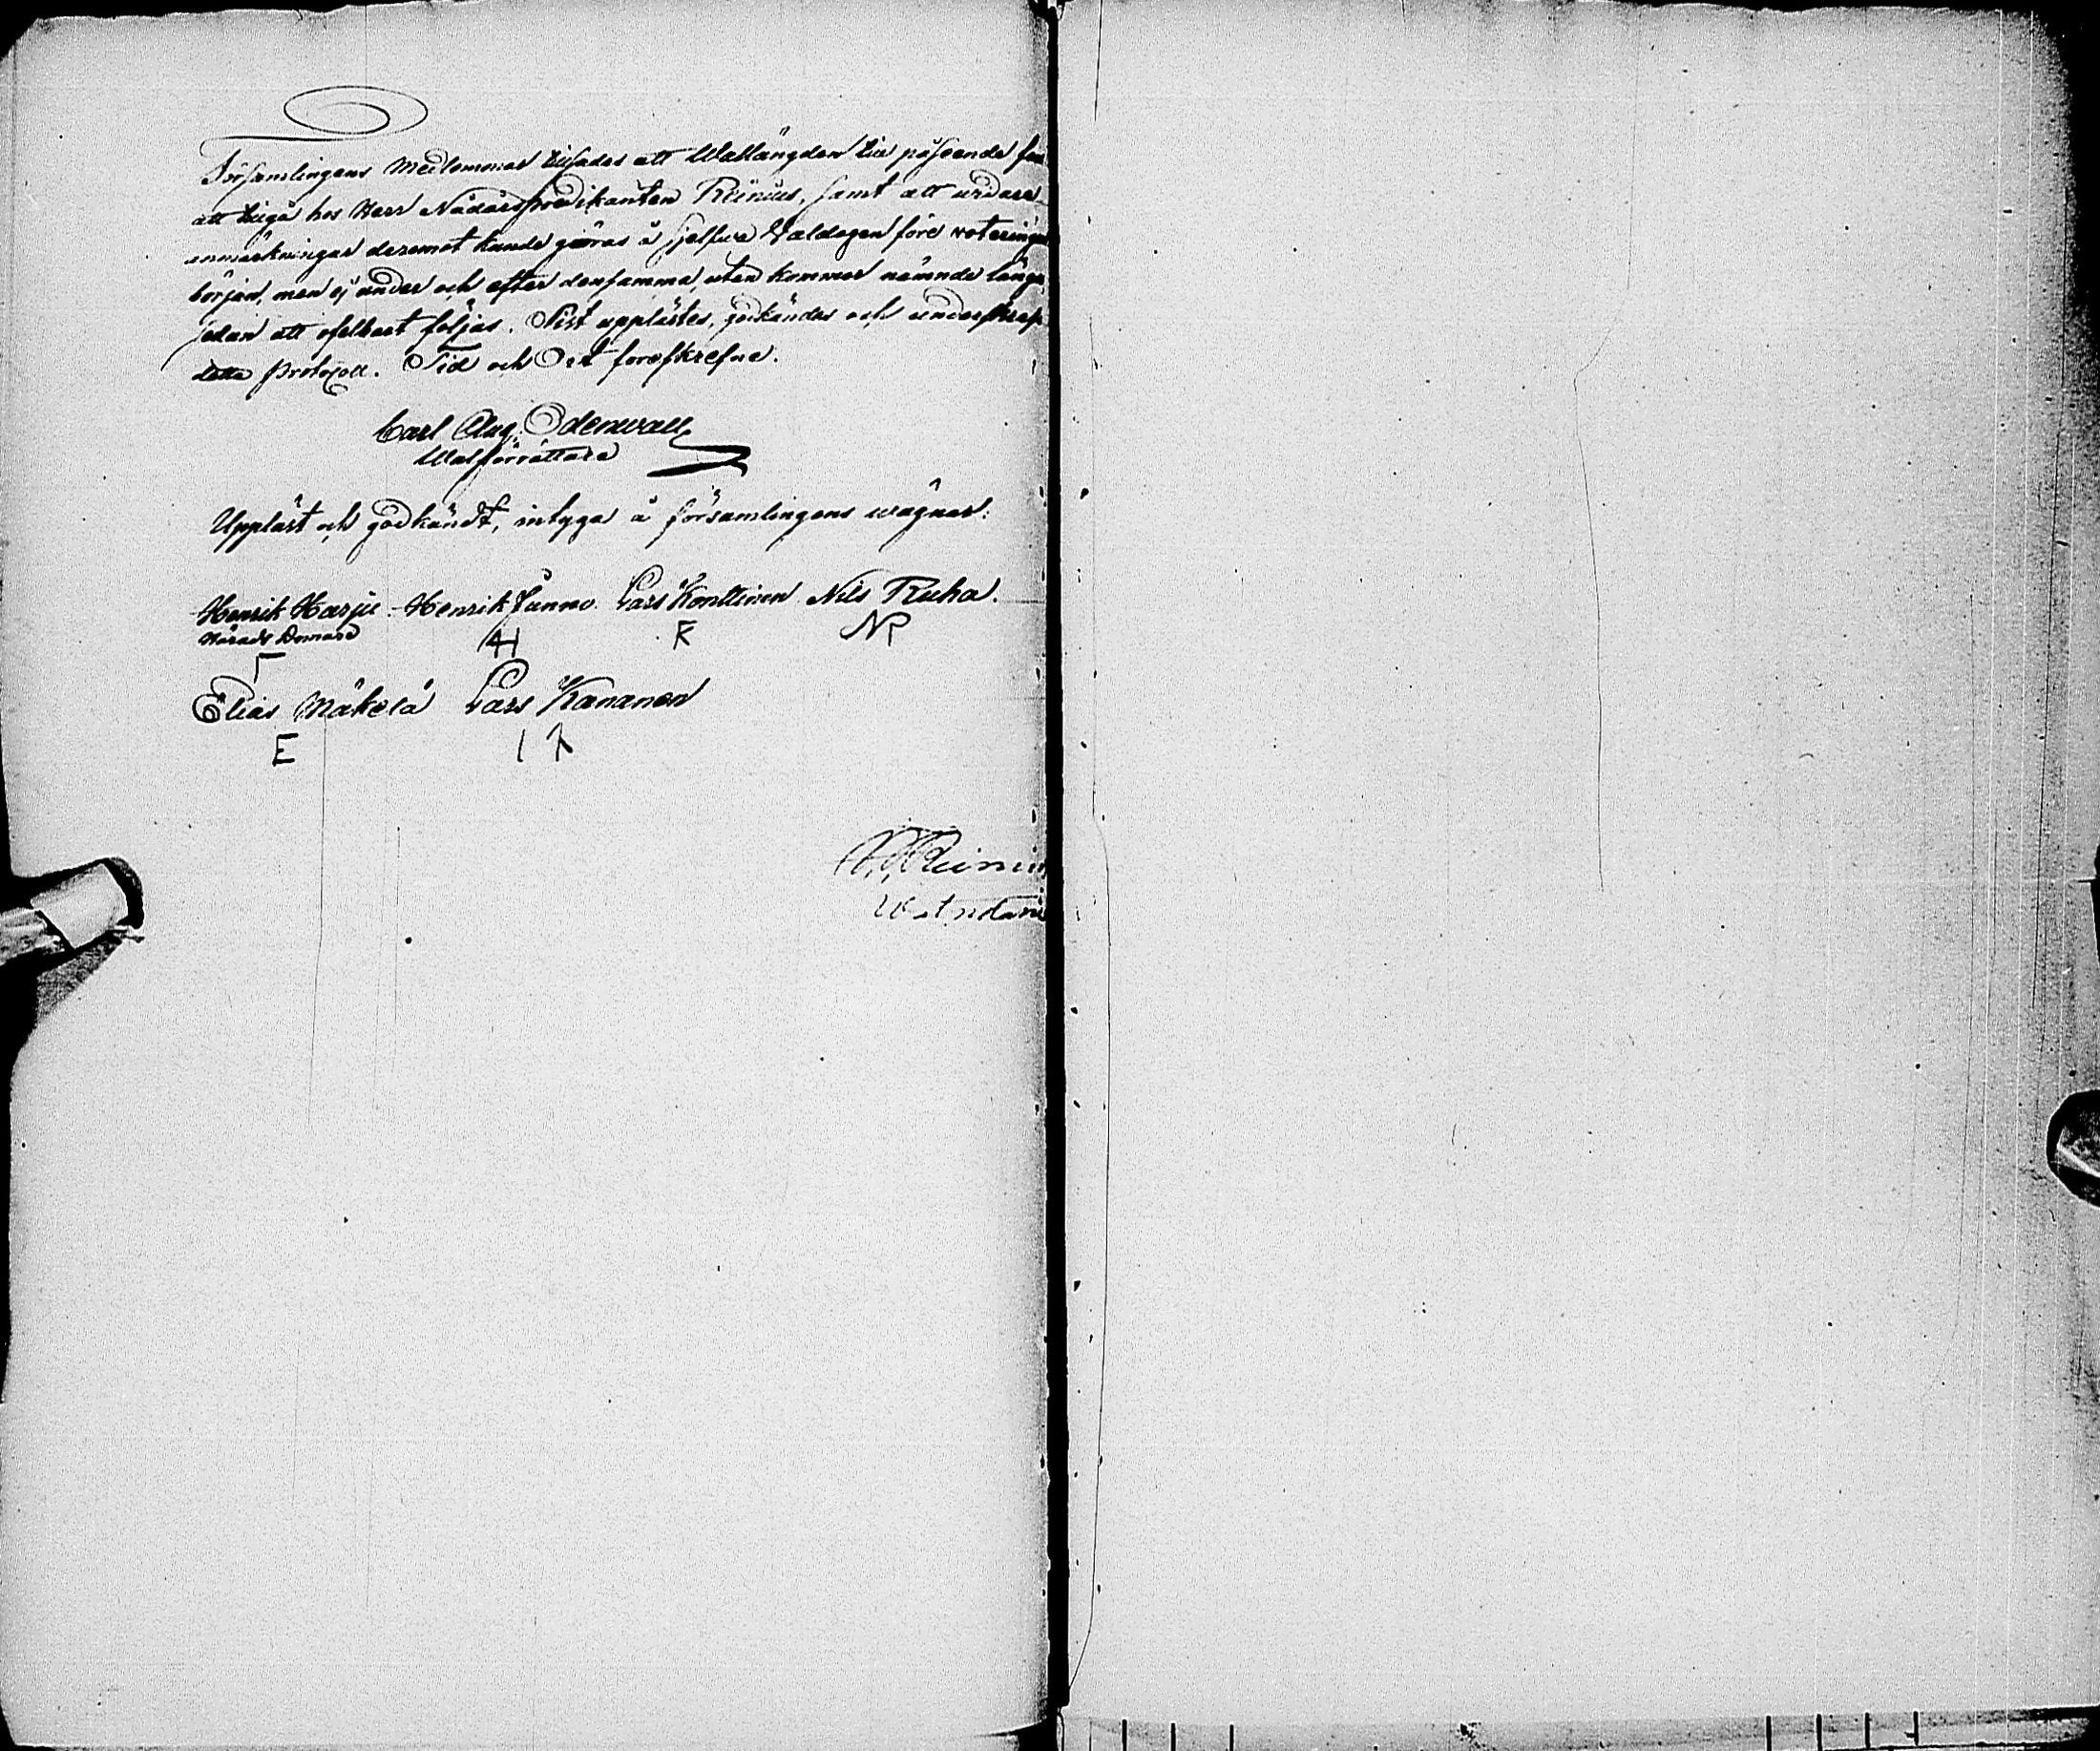 Församlingens Medlemmar tilsades att Wallängden till påseende
att tilgå hos Herr Nådårspredikanten Reinius, samt att
anmärkningar deremot kunde göras å sjelfwa Valdagen före votering
början, men ej under och efter densamma, utan kommer nämnde läng
sedan att ofelbart följas. Sist upplästes, godkändes och underskref
detta protocoll. Tid och Ort förefskrefne.
Carl Aug. Odenwall
Walförrättare
Uppläst och godkändt, intyga å församlingens wägnar:
Henrik Harju Henrik Junno Lars Konttinen Nils Ruha.
Härads Domare H K NR
Elias Mäkelä Lars Kananen
E
Reiniu